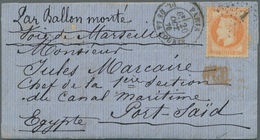 Par Ballon monté
Voie de Marseille
Monsieur
Jules Marcaire
Chef de la Section
du Canal Maritime
Port-Saïd
Egypte
PARIS